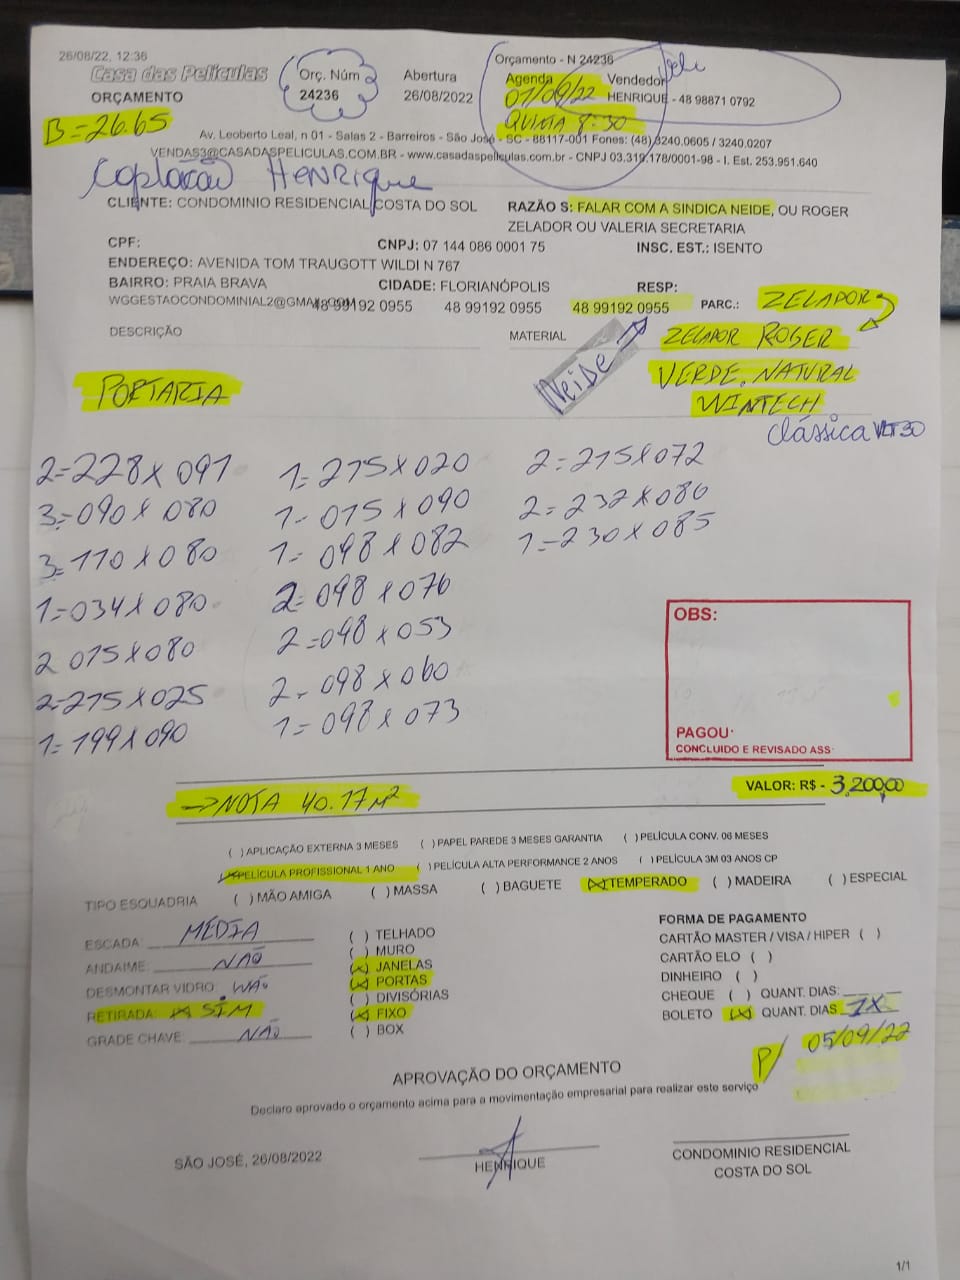 26/08/22, 12:36
Orçamento - N 24236
Casa das Películas
ORÇAMENTO
Orç. Núm
24236
Abertura
26/08/2022
Agenda
01/09/22
QUINTA 8:30
Vendedor
HENRIQUE - 48 98871 0792
B=26.65
Av. Leoberto Leal, n 01 - Salas 2 - Barreiros - São José - SC - 88117-001 Fones: (48) 3240.0605 / 3240.0207
VENDAS3@CASADASPELICULAS.COM.BR - www.casadaspeliculas.com.br - CNPJ 03.319.178/0001-98 - I. Est. 253.951.640
HENRIQUE
CLIENTE: CONDOMINIO RESIDENCIAL COSTA DO SOL
RAZÃO S: FALAR COM A SINDICA NEIDE, OU ROGER
ZELADOR OU VALERIA SECRETARIA
CPF:
CNPJ: 07 144 086 0001 75
INSC. EST.: ISENTO
ENDEREÇO: AVENIDA TOM TRAUGOTT WILDI N 767
BAIRRO: PRAIA BRAVA
CIDADE: FLORIANÓPOLIS
RESP:
WGGESTAOCONDOMINIAL2@GMAIL.COM
48 99192 0955
48 99192 0955
48 99192 0955
PARC.:
ZELADOR
DESCRIÇÃO
MATERIAL
Neise
ZELADOR ROGER
VERDE. NATURAL
WINTECH
Clássica VLT 30
PORTARIA
2=228 X 091
3=090 X 080
3=110 X 080
1=034 X 080
2 015 X 080
2=215 X 025
1=199 X 090
1=215 X 020
1=015 X 090
1=098 X 082
2=098 X 076
2=098 X 053
2=098 X 060
1=098 X 073
2=215 X 072
2=232 X 086
1=230 X 085
OBS:
PAGOU:
CONCLUIDO E REVISADO ASS:
VALOR: R$ - 3.200,00
→NOTA 40.17 M²
( ) APLICAÇÃO EXTERNA 3 MESES ( ) PAPEL PAREDE 3 MESES GARANTIA ( ) PELÍCULA CONV. 06 MESES
(X) PELÍCULA PROFISSIONAL 1 ANO ( ) PELÍCULA ALTA PERFORMANCE 2 ANOS ( ) PELÍCULA 3M 03 ANOS CP
TIPO ESQUADRIA ( ) MÃO AMIGA ( ) MASSA ( ) BAGUETE (X) TEMPERADO ( ) MADEIRA ( ) ESPECIAL
ESCADA: MÉDIA
ANDAIME: NÃO
DESMONTAR VIDRO: NÃO
RETIRADA: X SIM
GRADE CHAVE: NÃO
( ) TELHADO
( ) MURO
(X) JANELAS
(X) PORTAS
( ) DIVISÓRIAS
(X) FIXO
( ) BOX
FORMA DE PAGAMENTO
CARTÃO MASTER / VISA / HIPER ( )
CARTÃO ELO ( )
DINHEIRO ( )
CHEQUE ( ) QUANT. DIAS:
BOLETO (X) QUANT. DIAS 1X
P/ 05/09/22
APROVAÇÃO DO ORÇAMENTO
Declaro aprovado o orçamento acima para a movimentação empresarial para realizar este serviço
SÃO JOSÉ, 26/08/2022
HENRIQUE
CONDOMINIO RESIDENCIAL
COSTA DO SOL
1/1